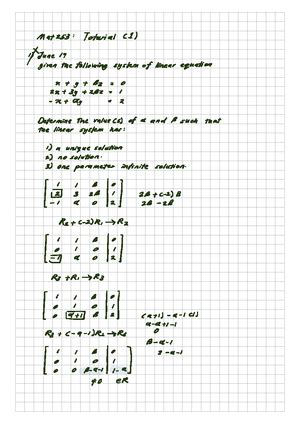 Mat263: Tutorial (1)
1) June 17
given the following system of linear equation
x + y + βz = 0
2x + 3y + 2βz = 1
-x + αy = 2
Determine the value(s) of α and β such that
the linear system has:
1) a unique solution
2) no solution.
3) one parameter infinite solution.
1 1 β 0
2 3 2β 1 2β + (-2) β
-1 α 0 2 2β - 2β
R2 + (-2)R1 → R2
1 1 β 0
0 1 0 1
-1 α 0 2
R3 + R1 → R3
1 1 β 0
0 1 0 1 (α+1) - α-1 (1)
0 α+1 β 2 α-α+1-1
R3 + (-α-1)R2 → R3 0
1 1 β 0 β-α-1
0 1 0 1 2-α-1
0 0 β-α-1 1-α
≠0 ∈R